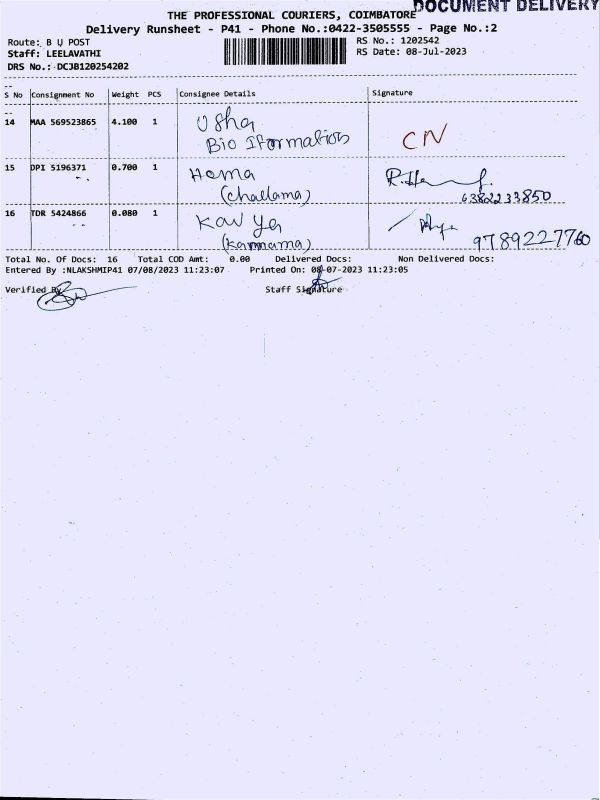 DOCUMENT DELIVERY
THE PROFESSIONAL COURIERS, COIMBATORE
Delivery Runsheet - P41 - Phone No.:0422-3505555 - Page No.:2
Route: B U POST
RS No.: 1202542
Staff: LEELAVATHI
RS Date: 08-Jul-2023
DRS No.: DCJB120254202
S No Consignment No Weight PCS Consignee Details Signature
14 MAA 569523865 4.100 1 Usha
Bio Iformation CN
15 DPI 5196371 0.700 1 Hema
(challama) 6382233850
16 TDR 5424866 0.080 1 Kav Ya
(kannama) 9789227760
Total No. Of Docs: 16 Total COD Amt: 0.00 Delivered Docs: Non Delivered Docs:
Entered By :NLAKSHMIP41 07/08/2023 11:23:07 Printed On: 08-07-2023 11:23:05
Verified By Staff Signature